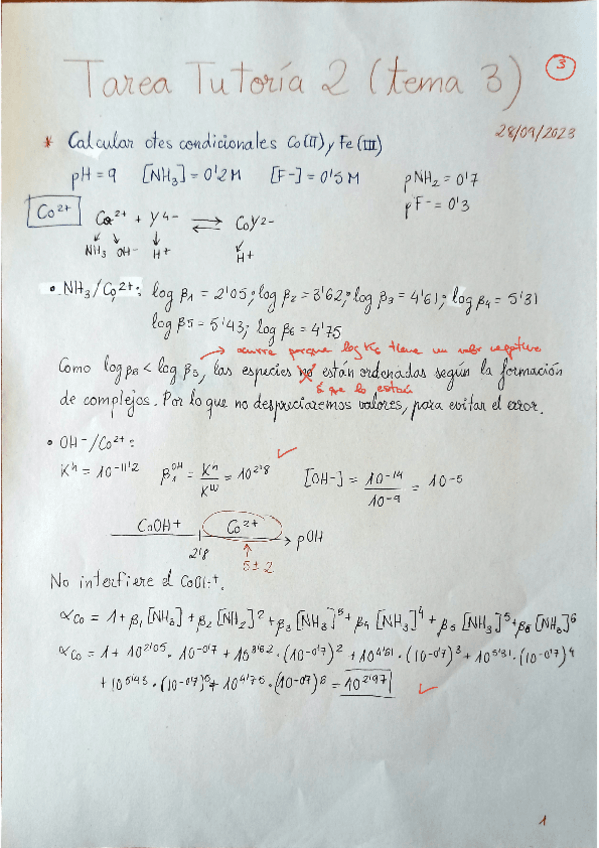 Tarea Tutoría 2 (tema 3)
3
28/09/2023
* Calcular ctes condicionales Co(II) y Fe(III)
pH = 9 [NH3] = 0'2 M [F-] = 0'5 M pNH2 = 0'7
pF- = 0'3
Co2+
Co2+ + Y4- ⇌ CoY2-
NH3 OH- H+ H+
• NH3/Co2+: log β1 = 2'05; log β2 = 3'62; log β3 = 4'61; log β4 = 5'31
log β5 = 5'43; log β6 = 4'75
→ ocurre porque log K6 tiene un valor negativo
Como log β6 < log β5, las especies no están ordenadas según la formación
sí que lo están
de complejos. Por lo que no despreciaremos valores, para evitar el error.
• OH-/Co2+:
Kh = 10-11'2 β1OH = Kh/Kw = 10^2'8 ✓ [OH-] = 10-14/10-9 = 10-5
CoOH+ | Co2+ → pOH
2'8
5 ± 2
No interfiere el CoOH+.
αCo = 1 + β1[NH3] + β2[NH2]^2 + β3[NH3]^3 + β4[NH3]^4 + β5[NH3]^5 + β6[NH3]^6
αCo = 1 + 10^2'05 · 10^-0'7 + 10^3'62 · (10^-0'7)^2 + 10^4'61 · (10^-0'7)^3 + 10^5'31 · (10^-0'7)^4
+ 10^5'43 · (10^-0'7)^5 + 10^4'75 · (10^-0'7)^6 = 10^2'97 ✓
1